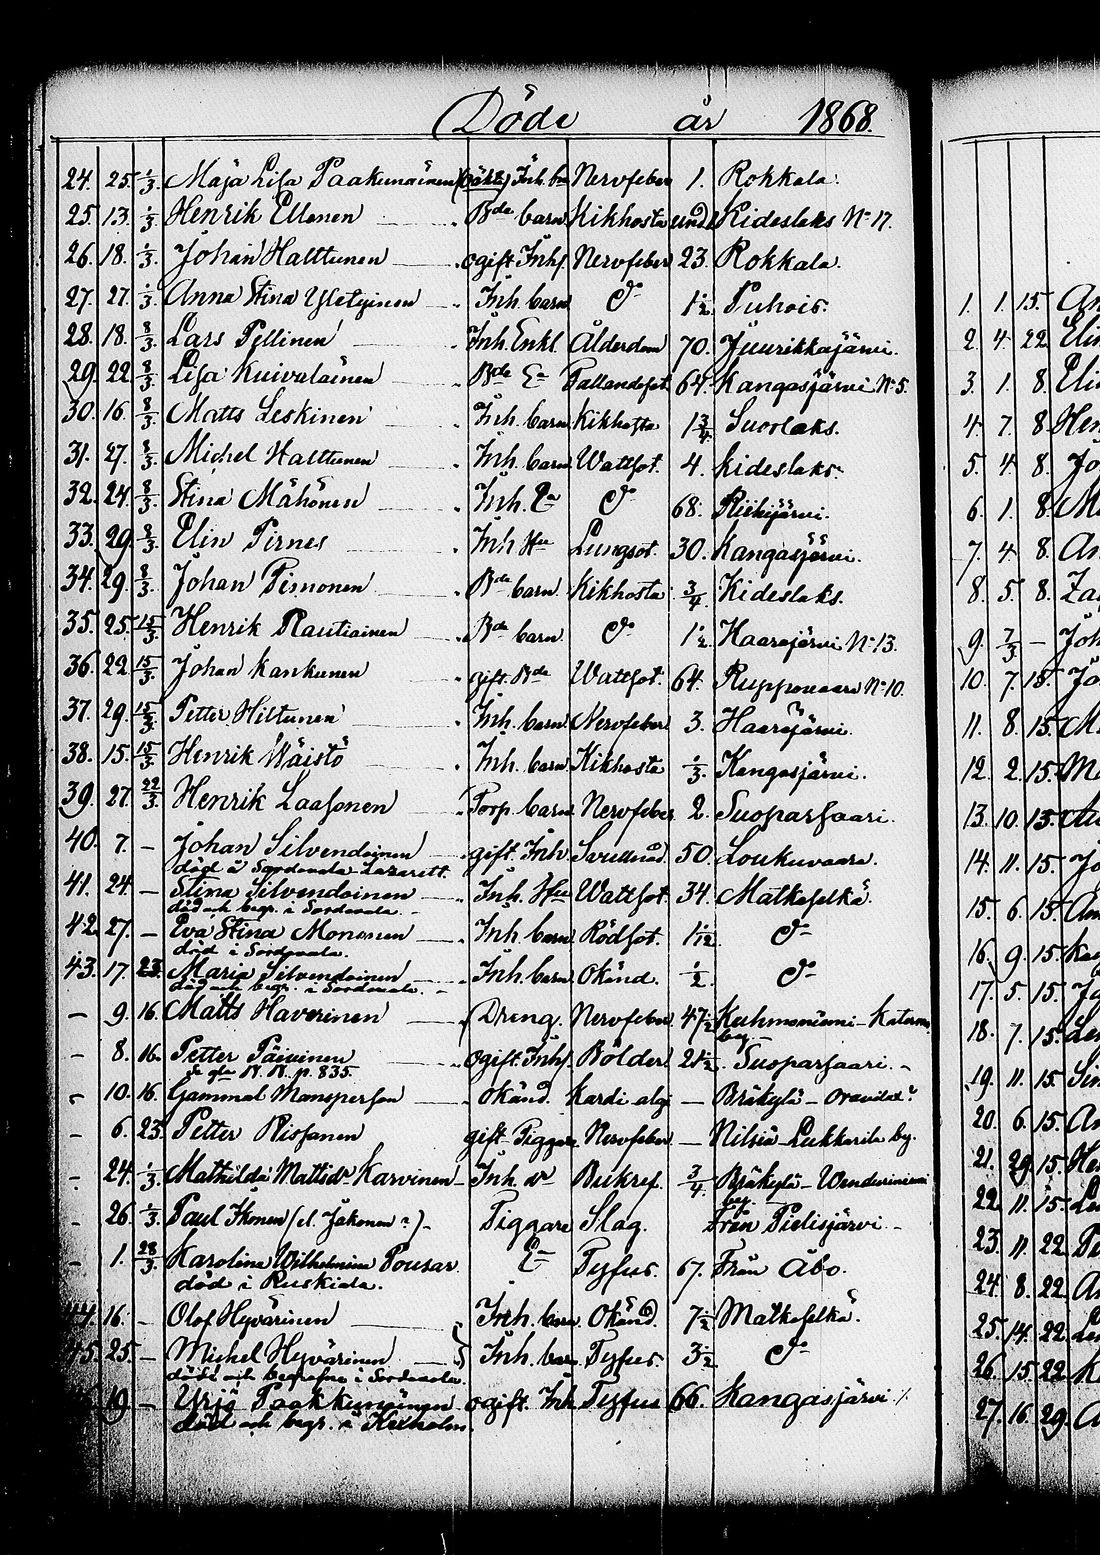 Döde år 1868.
24. 25. 1/3. Maja Lisa Paakkunainen (oäkta) Inh. bn Nervfeber 1. Rokkala.
25. 13. 1/3. Henrik Ellonen Bde barn Kikhosta und. 1 Kideslaks No 17.
26. 18. 1/3. Johan Halttunen ogift Inh. Nervfeber 23. Rokkala.
27. 27. 1/3. Anna Stina Yletyinen Inh. barn do 1 1/2. Puhois.
28. 18. 8/3. Lars Pellinen Inh. Enkl. Ålderdom 70. Juurikkajärvi.
29. 22. 8/3. Lisa Kuivalainen Bde Ea Fallandesot 64. Kangasjärvi No 5.
30. 16. 8/3. Matts Leskinen Inh. barn Kikhosta 1 3/4. Suorlaks.
31. 27. 8/3. Michel Halttunen Inh. barn Wattsot. 4. Kideslaks.
32. 24. 8/3. Stina Mähönen Inh. Ea do 68. Riihijärvi.
33. 29. 8/3. Elin Pirnes Inh. Hu Lungsot. 30. Kangasjärvi.
34. 29. 8/3. Johan Pimonen Bde barn Kikhosta 3/4. Kideslaks.
35. 25. 15/3. Henrik Rautiainen Bde barn do 1 1/2. Haarajärvi No 13.
36. 22. 15/3. Johan Kankunen gift. Bde Wattsot. 64. Rupponvaara No 10.
37. 29. 15/3. Petter Hiltunen Inh. barn Nervfeber 3. Haarajärvi.
38. 15. 15/3. Henrik Wäistö Inh. barn Kikhosta 1/3. Kangasjärvi.
39. 27. 22/3. Henrik Laasonen Torp. barn Nervfeber 2. Suoparsaari.
40. 7. – Johan Silvendoinen gift. Inh 50. Loukuvaara.
död å Sordavala Lazarett.
41. 24. – Stina Silvendoinen Inh. Hu Wattsot. 34. Matkaselkä.
död och begr. i Sordavala.
42. 27. – Eva Stina Mononen Inh. barn Rödsot. 1 1/12. do
död i Sordavala.
43. 17. 23. Maria Silvendoinen Inh. barn Okänd. 1/2. do
död och begr. i Sordavala.
– 9. 16. Matts Haverinen Dreng. Nervfeber 47 1/2 Kuhmoniemi – Katerma
by –
– 8. 16. Petter Päivinen ogift. Inh. Bölder 21 1/2. Suoparsaari.
N. B. p. 835.
– 10. 16. Gammal Mansperson Okänd. – Bräkylä –
– 6. 23. Petter Rissanen gift Tiggare Nervfeber – Nilsiä Lukkarila by.
– 24. 1/3 Mathilda Mattsdr Karvinen Inh. dr 3/4. Bräkylä –
by. –
– 26. 1/3. Paul Ikonen (el. Jakonen?) – Tiggare Slag. Från Pielisjärvi –
– 1. 28/3 Karolina Wilhelmina Pousar Ea Tyfus. 67. Från Åbo.
död i Ruskiala.
44. 16. – Olof Hyvärinen Inh. barn Okänd. 7 1/2 Matkaselkä.
45. 25. – Michel Hyvärinen Inh. barn Tyfus. 3 1/2 do
döda och begrafne i Sordavala.
46. 19. – Yrjö Paakkunainen ogift. Inh Tyfus 66. Kangasjärvi
död och begr. i Kexholm.
1. 1. 15.
2. 4. 22
3. 1. 8.
4. 7. 8.
5. 4. 8.
6. 1. 8.
7. 4. 8.
8. 5. 8.
9. 7/3 –
10. 7. 15.
11. 8. 15.
12. 2. 15.
13. 10. 15.
14. 11. 15.
15. 6. 15.
16. 9. 15.
17. 5. 15.
18. 7. 15.
19. 11. 15.
20. 6. 15.
21. 29. 15.
22. 11. 15.
23. 11. 22.
24. 8. 22.
25. 14. 22.
26. 15. 22.
27. 16. 29.